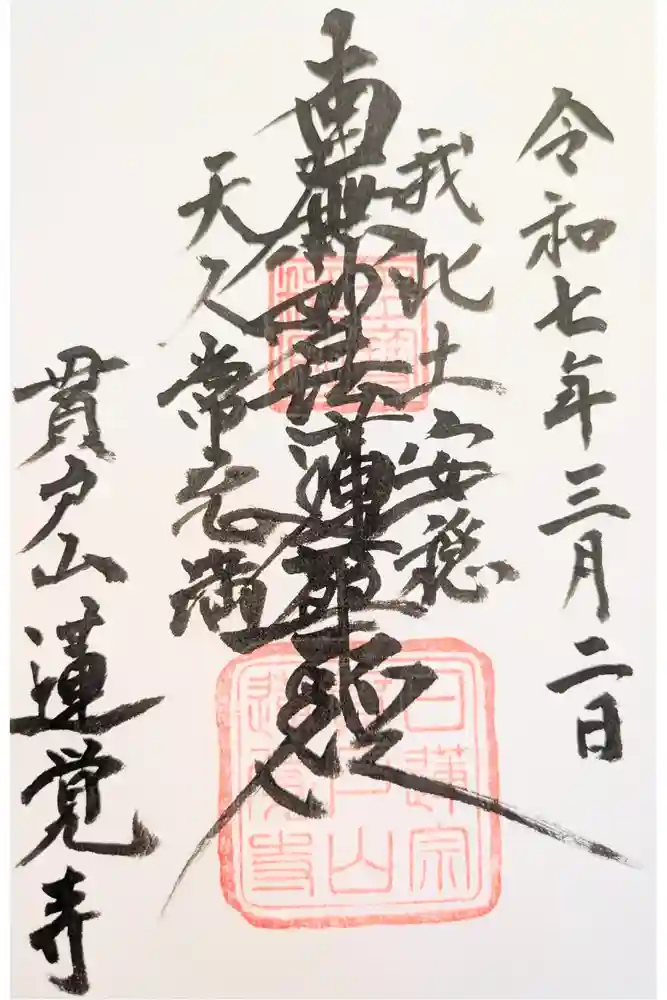 令和七年三月二日
我此土安穏
南無妙法蓮華経
天人常充満
貫戸山蓮覚寺
日蓮宗
貫戸山
蓮覚寺